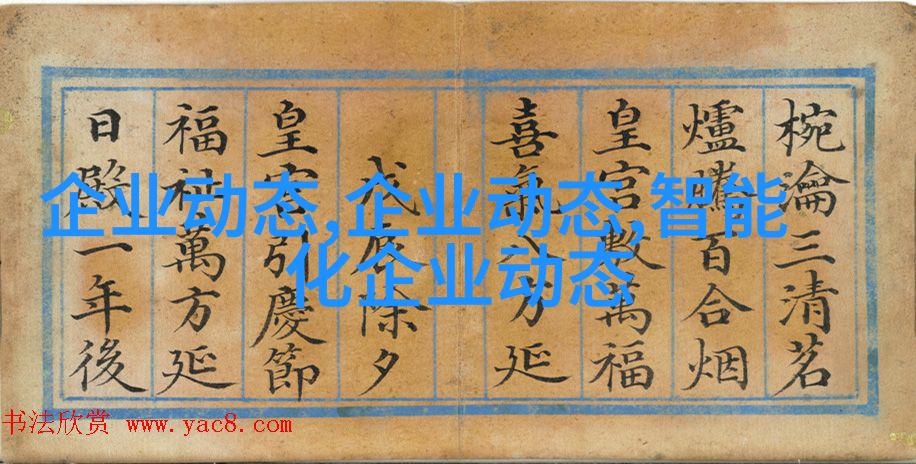 椀瀹三清茗
爐騰百合烟
皇宮敷萬福
喜氣八方延
戊辰除夕
皇宮引慶節
福祉萬方延
日殿一年後
企业动态,企业动态,智能
化企业动态
书法欣赏 www.yac8.com